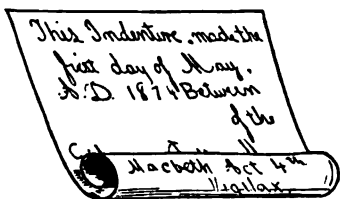 This Indenture, made the
first day of May,
A.D. 1874 Between
of the
Macbeth Act 4th